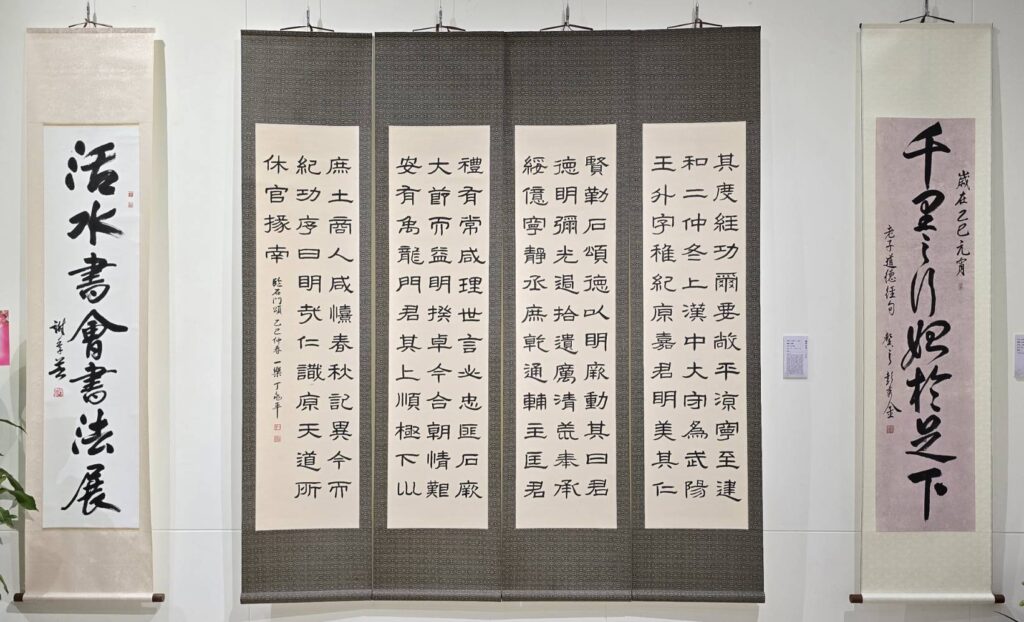 歲在乙巳元宵
千里之行始於足下
老子道德經句 彭秀金
其度經功爾要敞平涼寧至建
和二仲冬上漢中大守為武陽
王升字稚紀原嘉君明美其仁
賢勒石頌德以明厥勳其曰君
德明彌光過拾遺厲清荒奉承
綏億寧靜烝庶乾通輔主匡君
禮有常咸理世言必忠匪石厥
大節而益明揆卓今合朝情艱
安有禹龍門君其上順極下以
庶士商人咸憘春秋記異今而
紀功序曰明哉仁識原天道所
休官掾南
臨石門頌 乙巳仲春 一樂 丁兆平
活水書會書法展